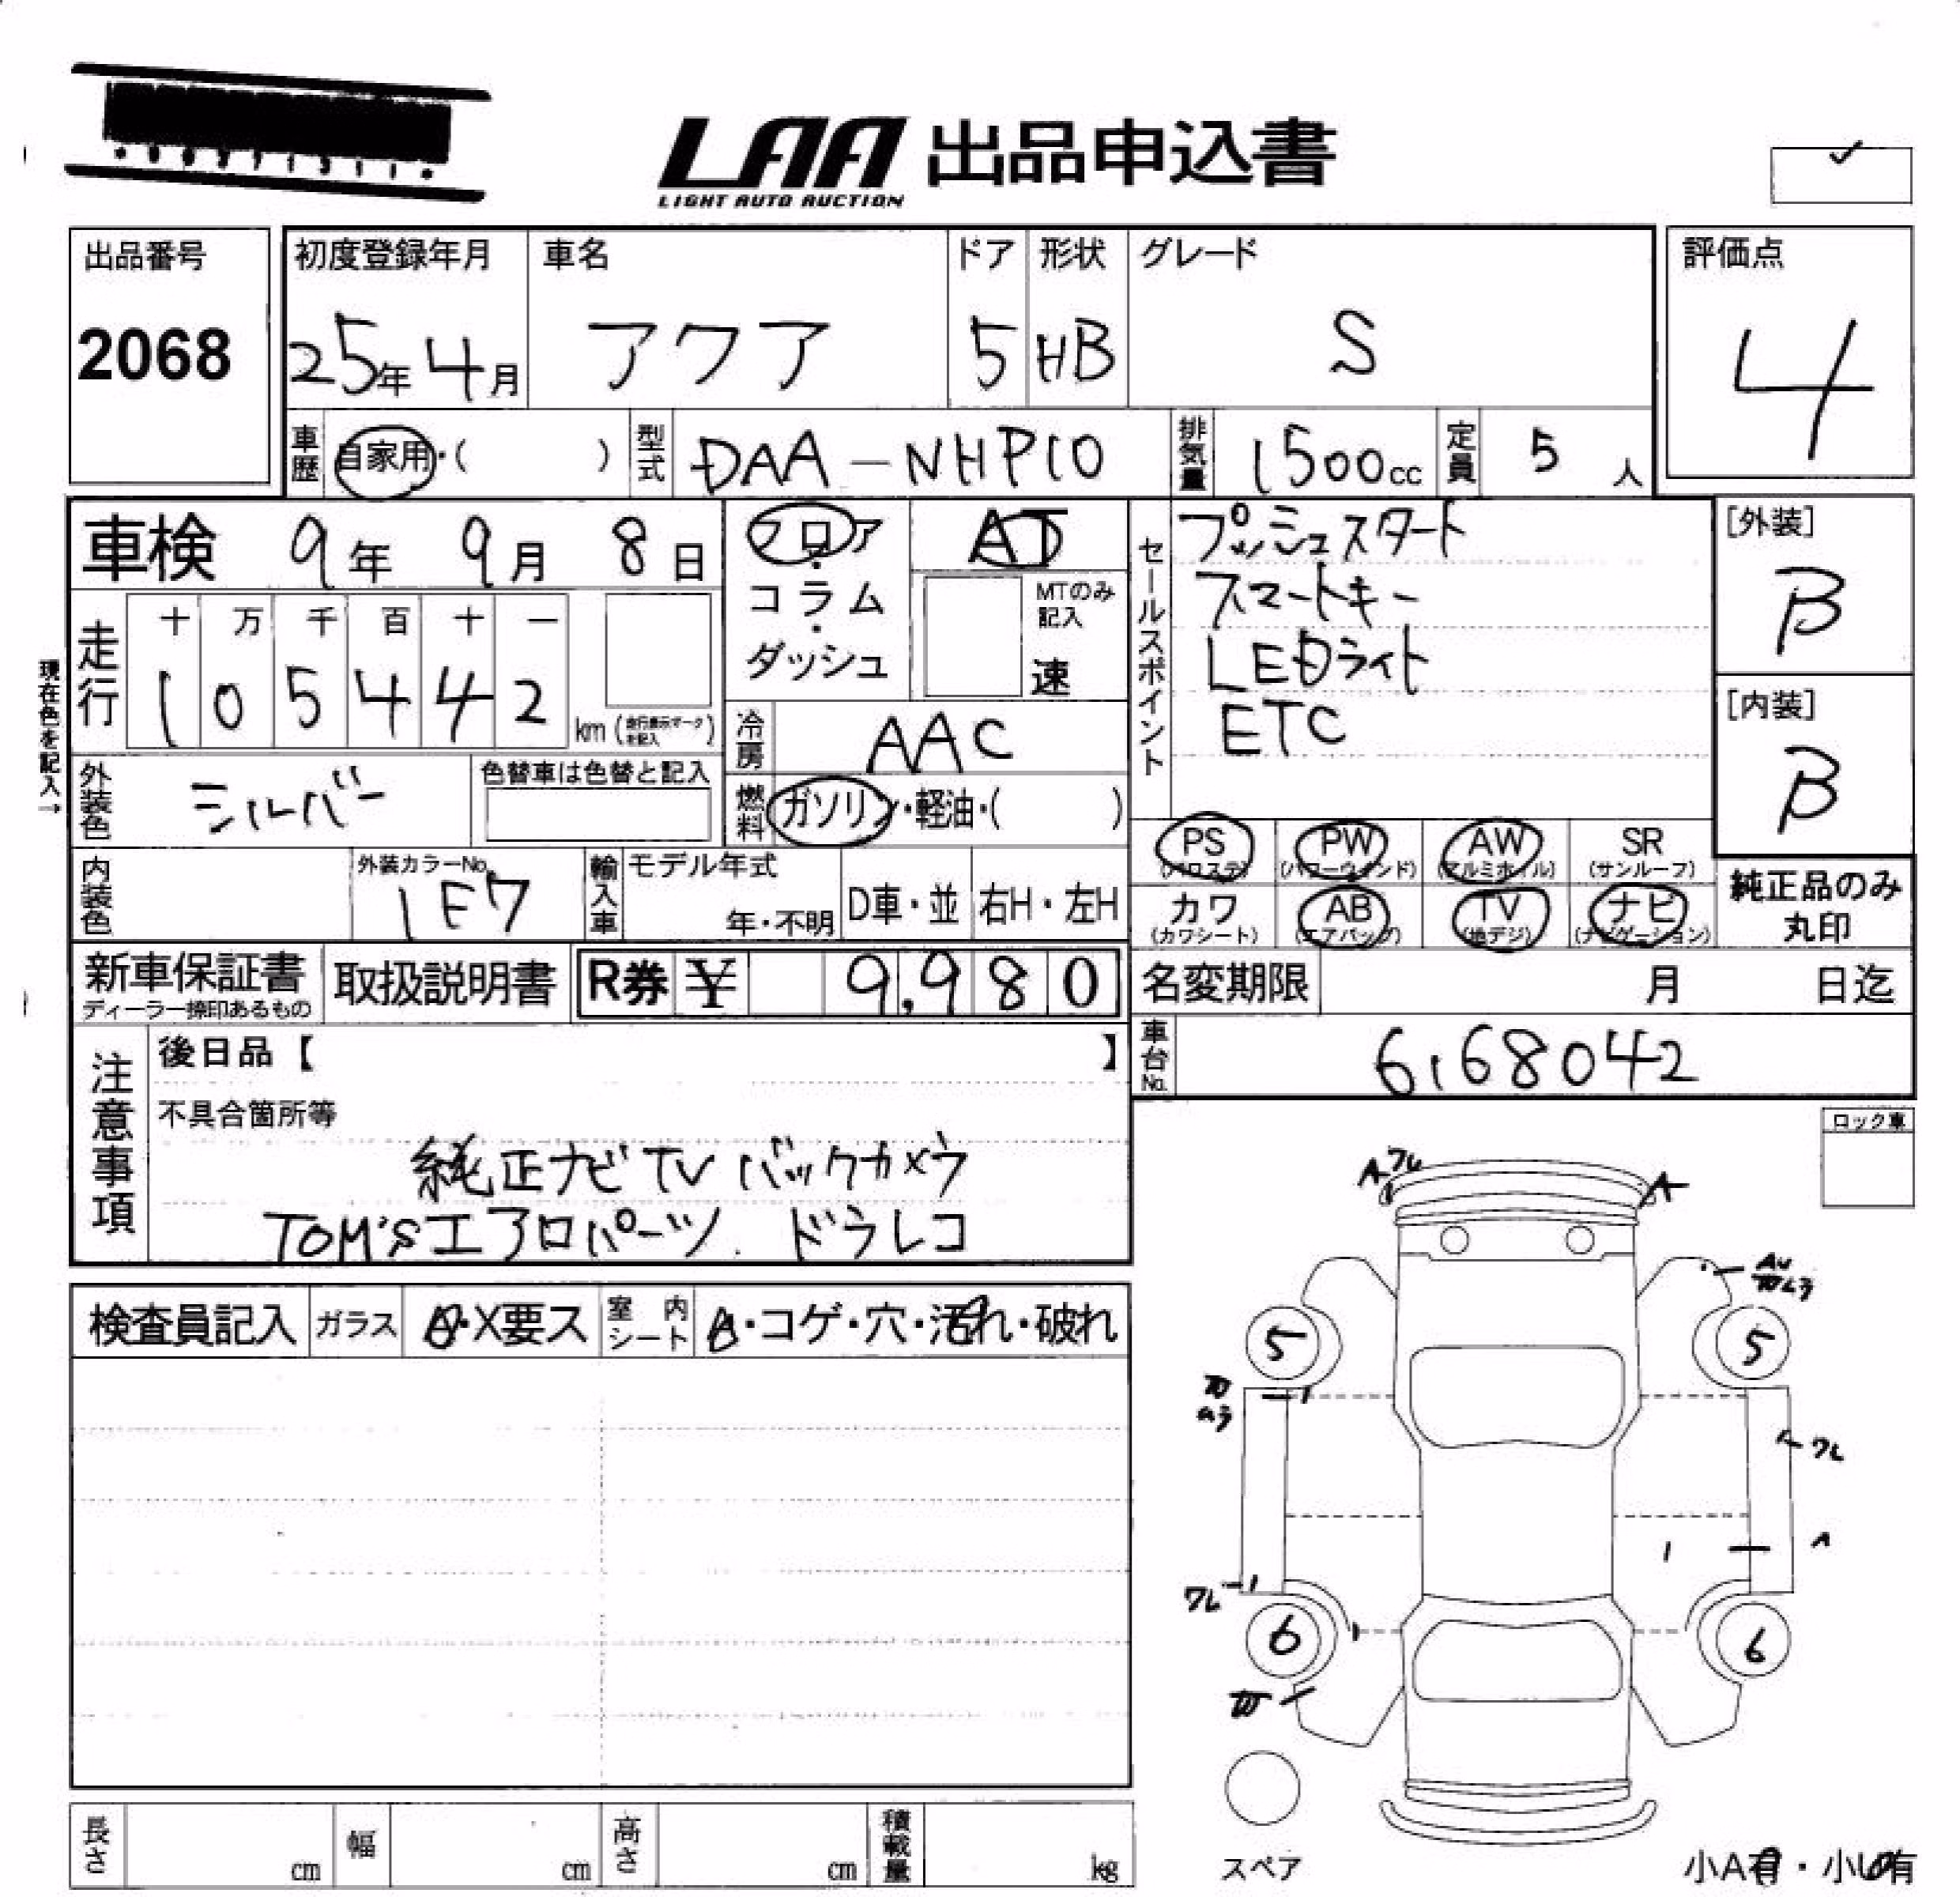 LAA 出品申込書
LIGHT AUTO AUCTION
出品番号
2068
初度登録年月
25年 4月
車名
アクア
ドア
5
形状
HB
グレード
S
評価点
4
車歴 自家用・( )
型式 DAA-NHP10
排気量 1500cc
定員 5人
車検 9年 9月 8日
フロア・コラム・ダッシュ
AT
MTのみ記入
速
セールスポイント
プッシュスタート
スマートキー
LEDライト
ETC
[外装]
B
[内装]
B
現在色を記入→
走行
十 万 千 百 十 一
1 0 5 4 4 2
km (走行表示マークを記入)
冷房 AAC
燃料 ガソリン・軽油・( )
外装色 シルバー
色替車は色替と記入
内装色
外装カラーNo.
1F7
輸入車
モデル年式
年・不明
D車・並
右H・左H
PS (パワステ)
PW (パワーウインド)
AW (アルミホイル)
SR (サンルーフ)
カワ (カワシート)
AB (エアバッグ)
TV (地デジ)
ナビ (ナビゲーション)
純正品のみ
丸印
新車保証書
ディーラー捺印あるもの
取扱説明書
R券 ¥ 9,980
名変期限 月 日迄
車台No. 6168042
注意事項
後日品【 】
不具合箇所等
純正ナビTV バックカメラ
TOM'Sエアロパーツ. ドラレコ
ロック車
検査員記入
ガラス
A・X要ス
室内シート
A・コゲ・穴・汚れ・破れ
A ワレ
A
5
5
ワレ
A
ワレ
6
6
スペア
小A有・小U有
長さ cm
幅 cm
高さ cm
積載量 kg